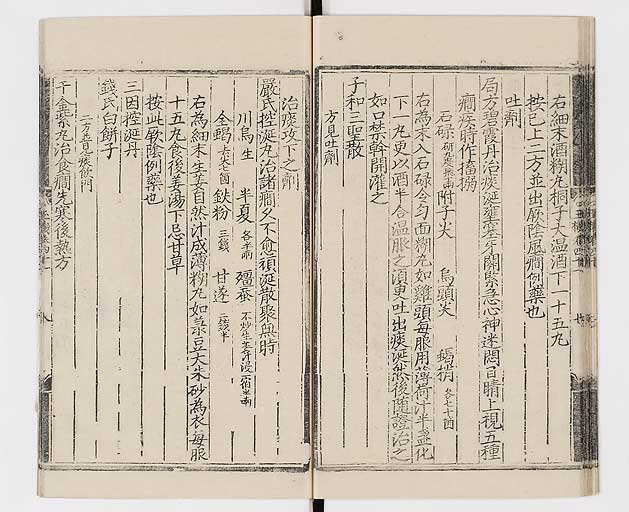 右細末酒糊丸桐子大温酒下一十五丸
按已上二方並出厥陰風癇例藥也
吐劑
局方碧霞丹治痰涎壅塞牙關緊急心神迷悶目睛上視五種
癇疾時作搐搦
石碌 附子尖 烏頭尖 蝎梢 各七十箇
右為末入石碌令勻面糊丸如雞頭每服用薄荷汁半盞化
下一丸更以酒半合温服之須更吐出痰涎然後隨證治之
如口禁斡開灌之
子和三聖散
方見吐劑
治痰攻下之劑
嚴氏控涎丸治諸癇久不愈頑涎散聚無時
川烏生 半夏 各半兩 殭蚕 不炒生姜汁浸一宿半兩
全蝎 去尖七箇 鉄粉 三錢 甘遂 二錢半
右為細末生姜自然汁成薄糊丸如菉豆大朱砂為衣每服
十五丸食後姜湯下忌甘草
按此厥陰例藥也
三因控涎丹
錢氏白餅子
二方並見痰飲門
千金紫丸治食癇先寒後熱方